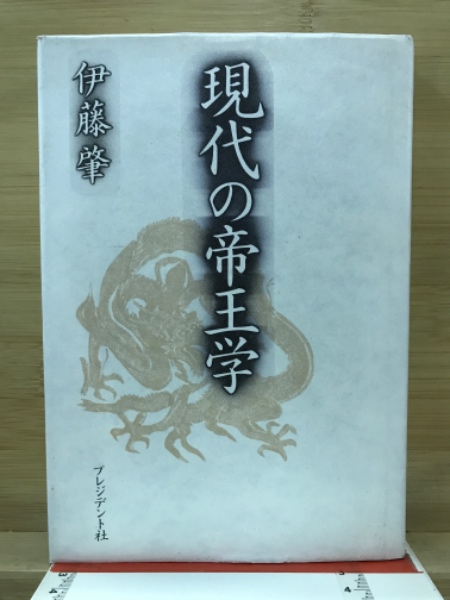 現代の帝王学
伊藤肇
プレジデント社
3
4
3
4